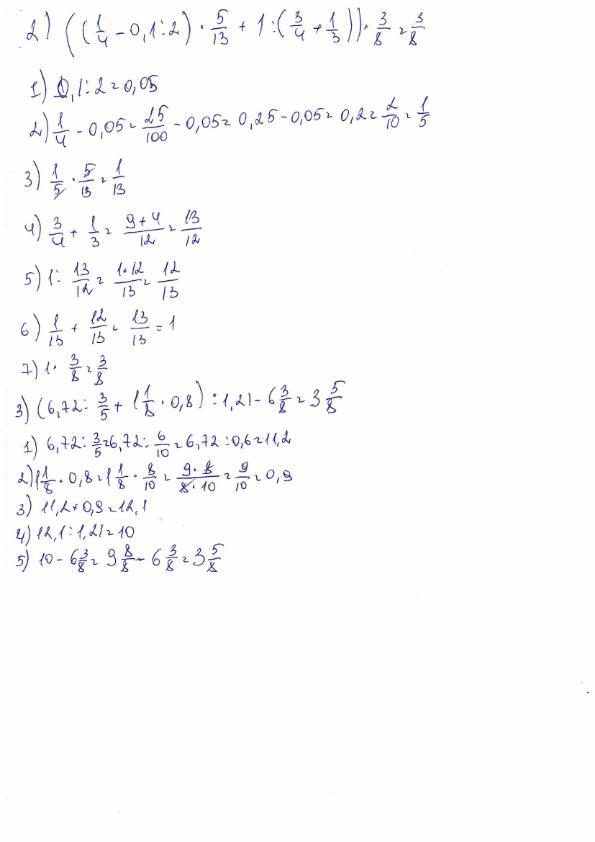 2) ((1/4 - 0,1:2) · 5/13 + 1:(3/4 + 1/3)) · 3/8 = 3/8
1) 0,1:2=0,05
2) 1/4 - 0,05 = 25/100 - 0,05 = 0,25 - 0,05 = 0,2 = 2/10 = 1/5
3) 1/5 · 5/13 = 1/13
4) 3/4 + 1/3 = 9+4/12 = 13/12
5) 1: 13/12 = 1·12/13 = 12/13
6) 1/13 + 12/13 = 13/13 = 1
7) 1· 3/8 = 3/8
3) (6,72: 3/5 + 1 1/8 · 0,8) : 1,21 - 6 3/8 = 3 5/8
1) 6,72: 3/5 = 6,72: 6/10 = 6,72:0,6=11,2
2) 1 1/8 · 0,8 = 1 1/8 · 8/10 = 9·8/8·10 = 9/10 = 0,9
3) 11,2+0,9=12,1
4) 12,1:1,21=10
5) 10 - 6 3/8 = 9 8/8 - 6 3/8 = 3 5/8